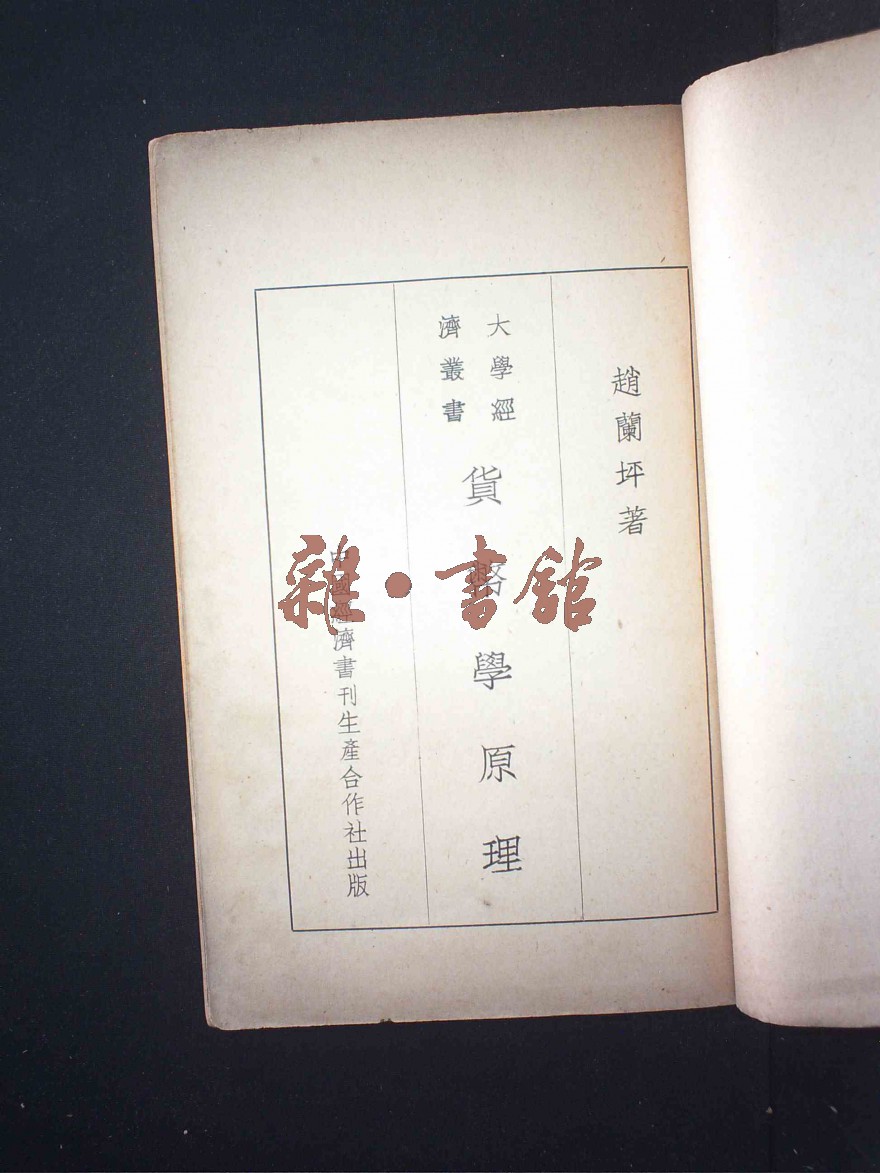 趙蘭坪著
大學經
濟叢書
貨幣學原理
中國經濟書刊生產合作社出版
雜·書館